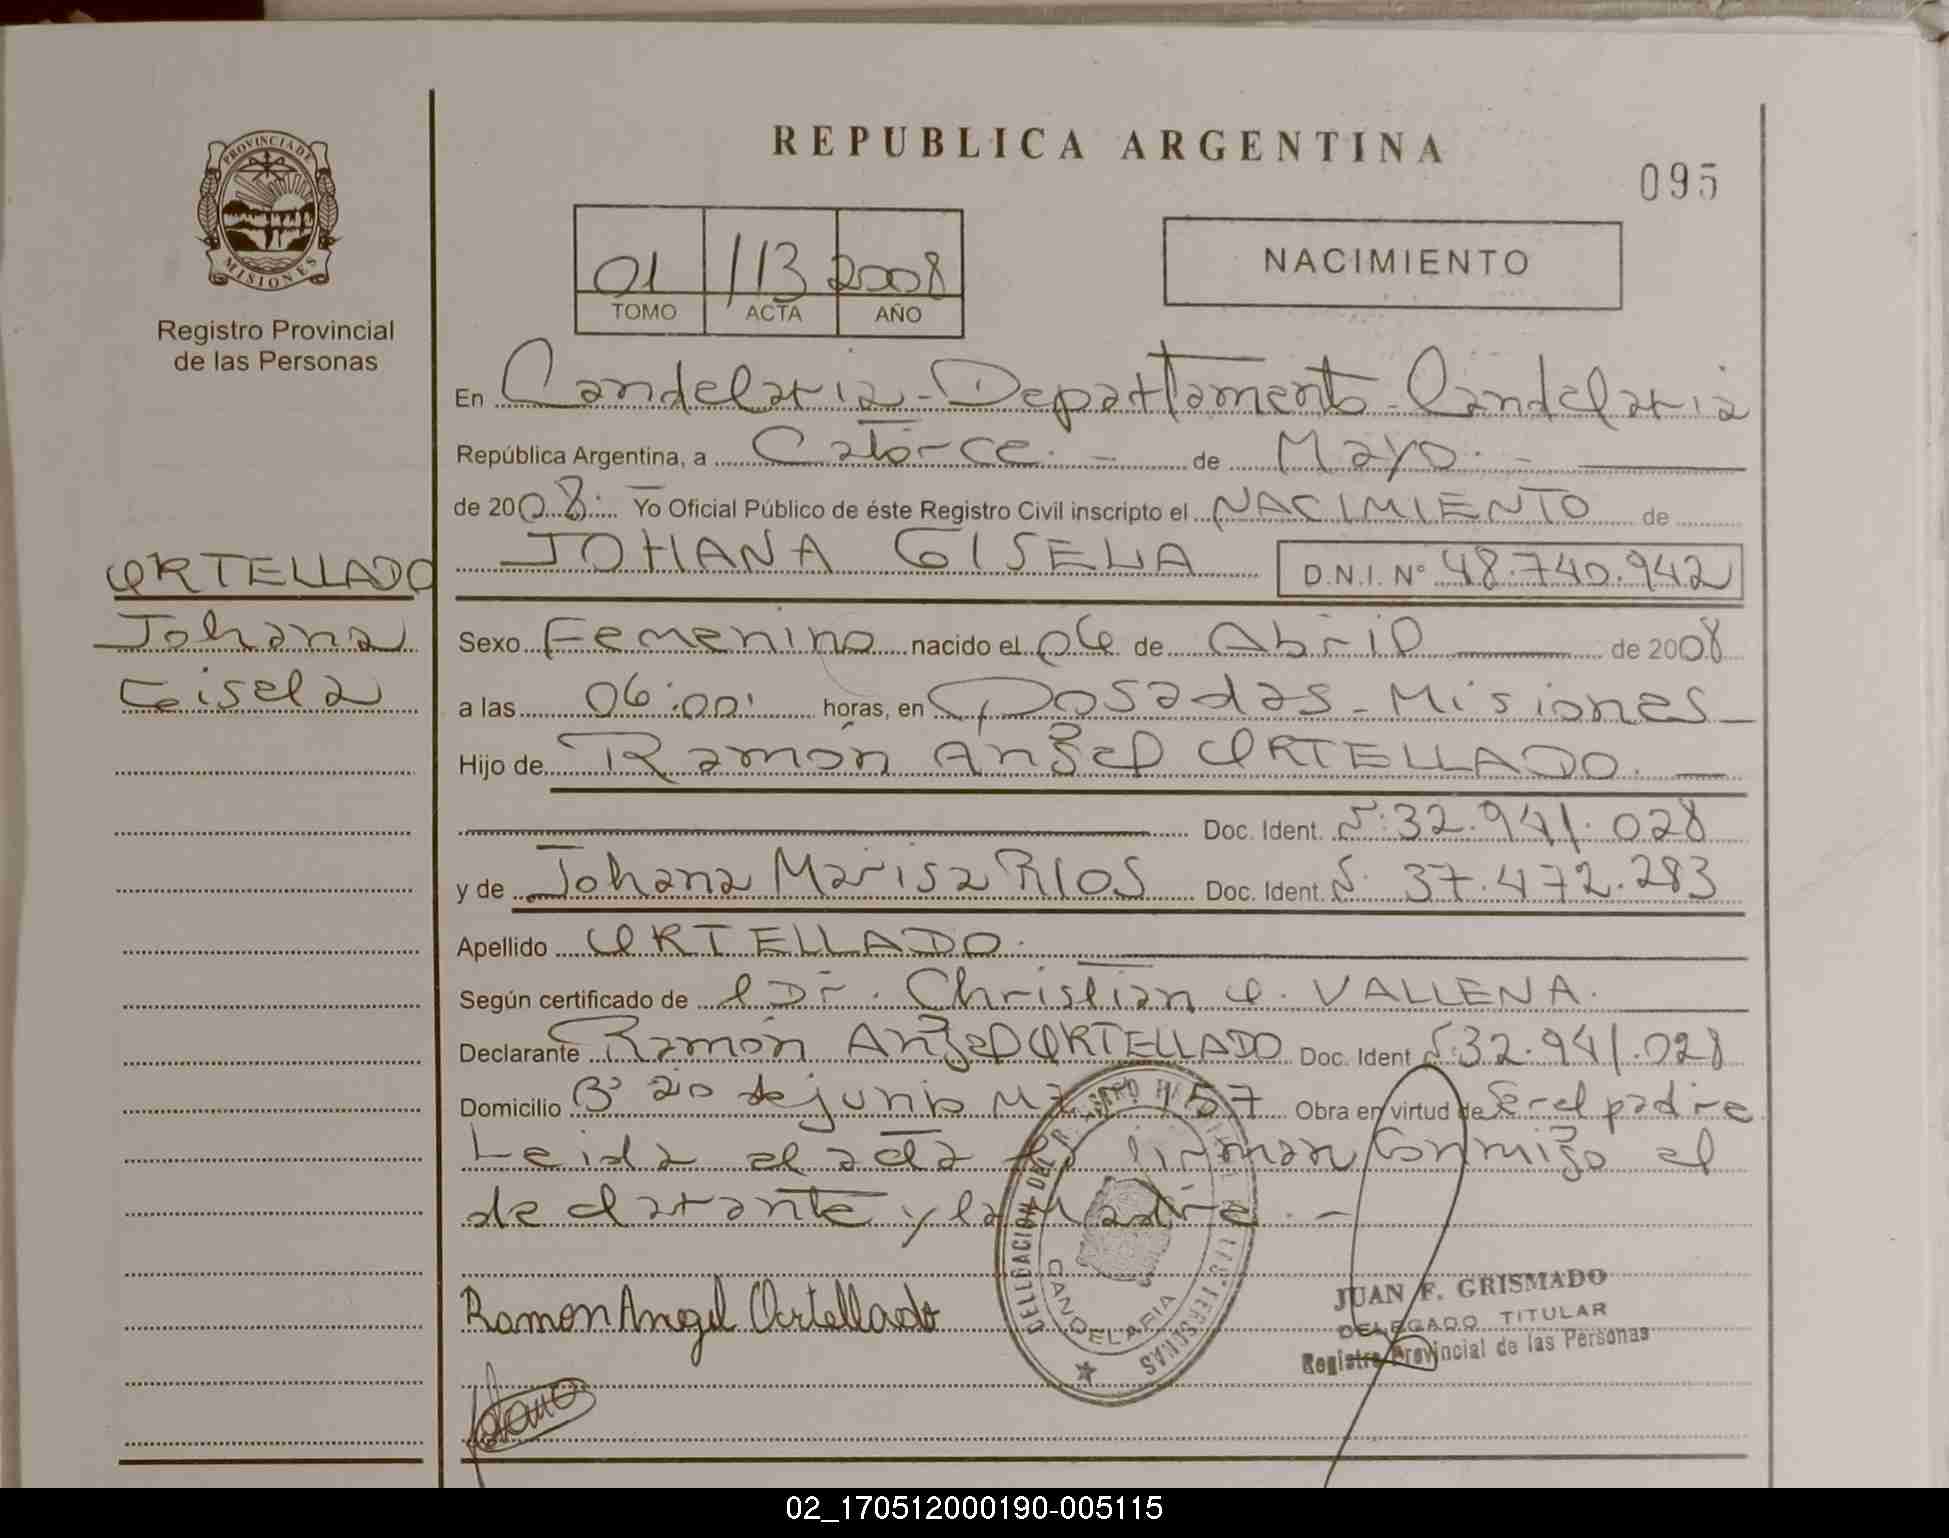 REPUBLICA ARGENTINA
095
PROVINCIA DE
MISIONES
Registro Provincial
de las Personas
01 113 2008
TOMO ACTA AÑO
NACIMIENTO
En Candelaria - Departamento Candelaria
República Argentina, a Catorce. - de Mayo. -
de 2008. Yo Oficial Público de éste Registro Civil inscripto el NACIMIENTO de
JOHANA GISELA D.N.I. Nº 48.740.942
ORTELLADO
Johana
Gisela
Sexo Femenino nacido el 06 de Abril de 2008
a las 06:00' horas, en Posadas - Misiones -
Hijo de Ramón Angel ORTELLADO.
Doc. Ident. Nº: 32.941.028
y de Johana Marisa RIOS Doc. Ident. Nº 37.472.283
Apellido ORTELLADO.
Según certificado de l Dr. Christian O. VALLENA.
Declarante Ramón Angel ORTELLADO Doc. Ident Nº: 32.941.028
Domicilio Bº 20 de junio Mz 157 Obra en virtud de Ser el padre
Leida el acta la firman conmigo el
declarante y la Madre. -
Ramon Angel Ortellado
DELEGACION DEL REGISTRO PROVINCIAL DE LAS PERSONAS
CANDELARIA
JUAN F. GRISMADO
DELEGADO TITULAR
Registro Provincial de las Personas
02_170512000190-005115